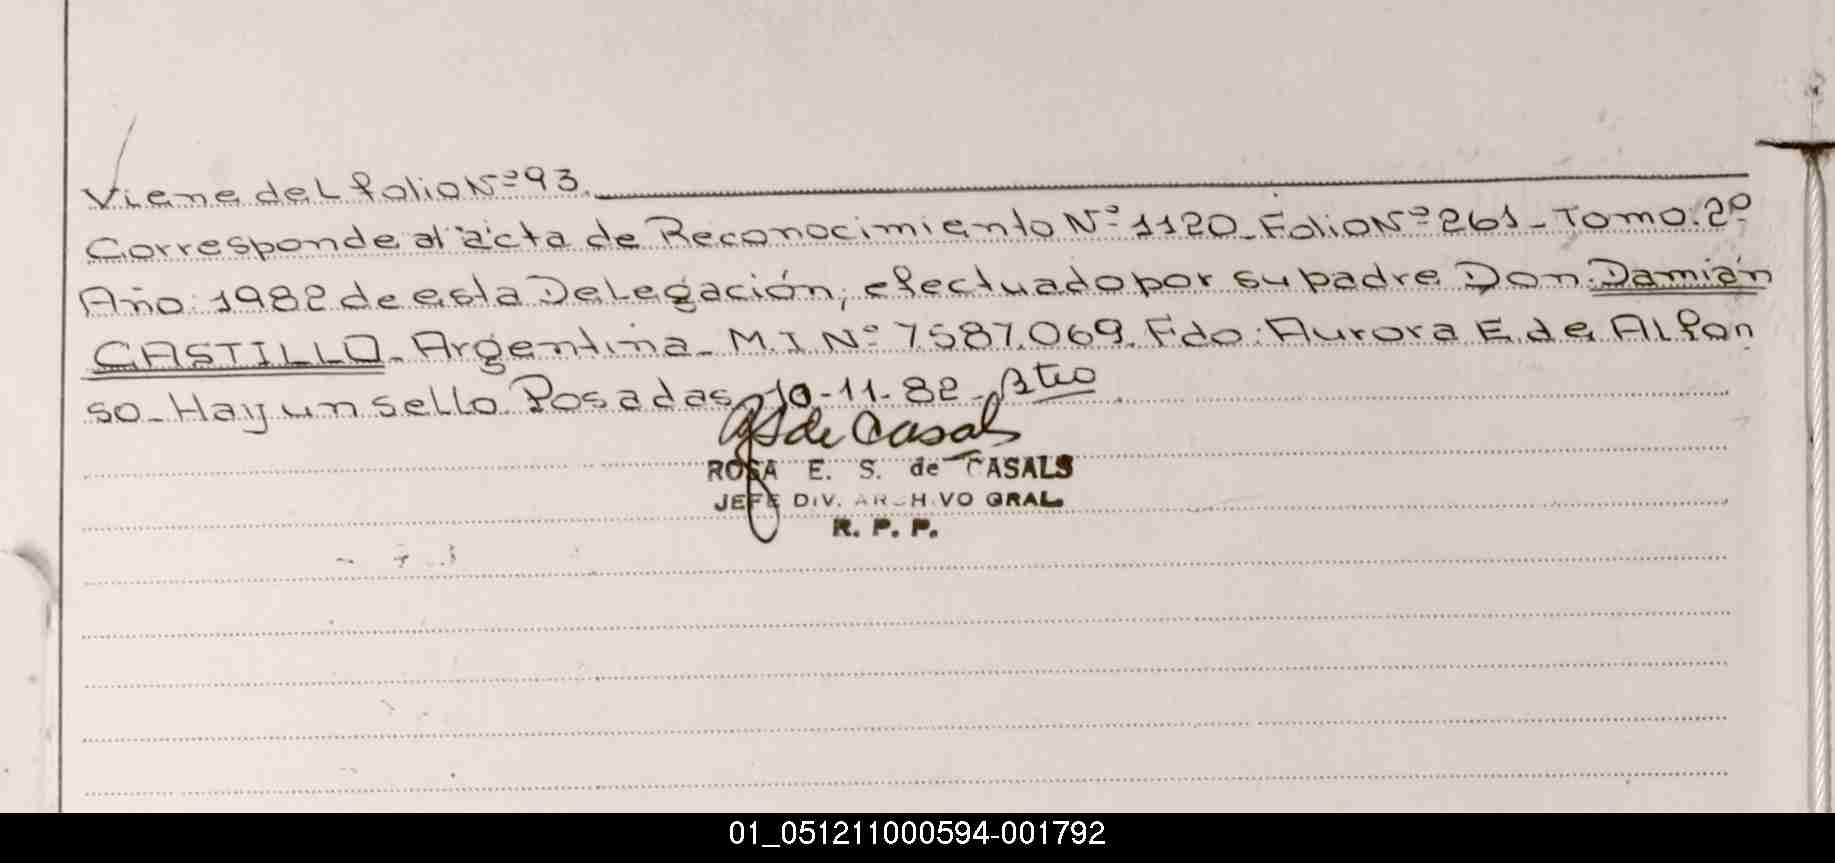 Viene del folio Nº 93.
Corresponde al acta de Reconocimiento Nº 1120_ Folio Nº 261_ Tomo: 2º
Año: 1982 de esta Delegación, efectuado por su padre Don: Damián
CASTILLO_ Argentina_ M.I Nº 7.587.069. Fdo: Aurora E. de Alfon
so_ Hay un sello. Posadas, 10-11-82_
de Casals
ROSA E. S. de CASALS
JEFE DIV. ARCHIVO GRAL.
R. P. P.
01_051211000594-001792